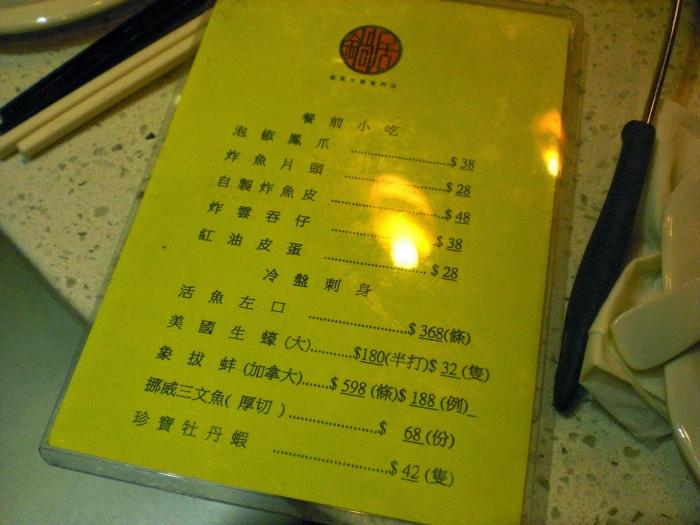 餐前小吃
泡椒鳳爪 $38
炸魚片頭 $28
自製炸魚皮 $48
炸雲吞仔 $38
紅油皮蛋 $28
冷盤刺身
活魚左口 $368(條)
美國生蠔(大) $180(半打)$32(隻)
象拔蚌(加拿大) $598(條)$188(例)
挪威三文魚(厚切) $68(份)
珍寶牡丹蝦 $42(隻)